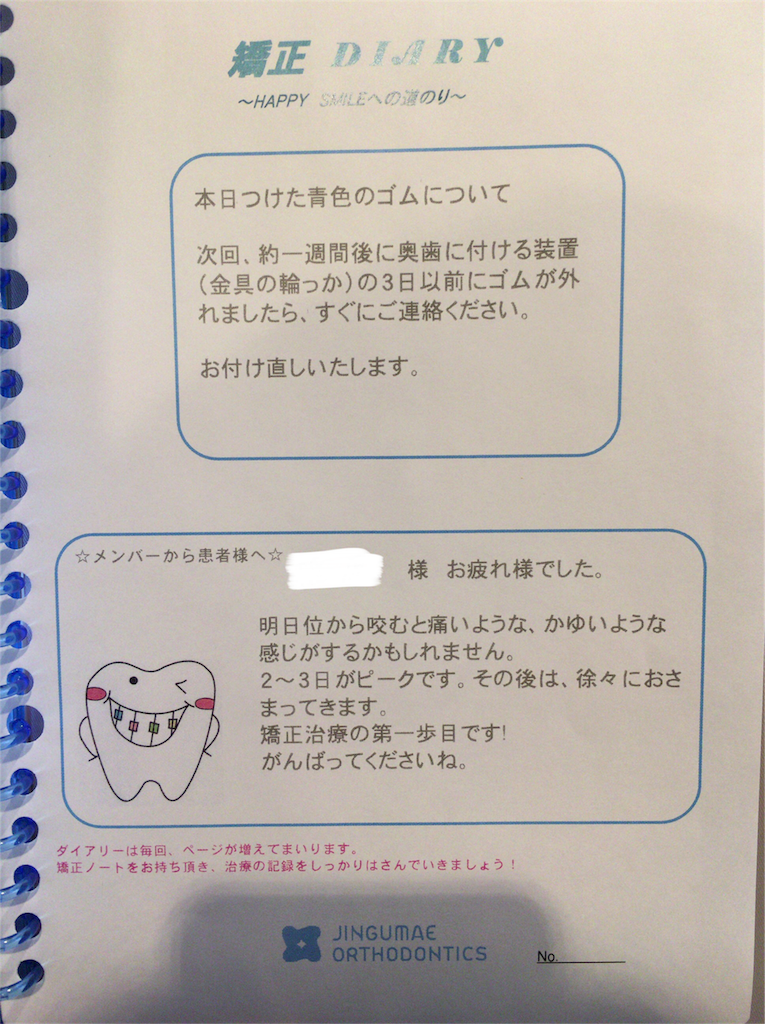 矯正 DIARY
〜HAPPY SMILEへの道のり〜
本日つけた青色のゴムについて
次回、約一週間後に奥歯に付ける装置
（金具の輪っか）の3日以前にゴムが外
れましたら、すぐにご連絡ください。
お付け直しいたします。
☆メンバーから患者様へ☆
様 お疲れ様でした。
明日位から咬むと痛いような、かゆいような
感じがするかもしれません。
2〜3日がピークです。その後は、徐々におさ
まってきます。
矯正治療の第一歩目です!
がんばってくださいね。
ダイアリーは毎回、ページが増えてまいります。
矯正ノートをお持ち頂き、治療の記録をしっかりはさんでいきましょう！
JINGUMAE
ORTHODONTICS
No.